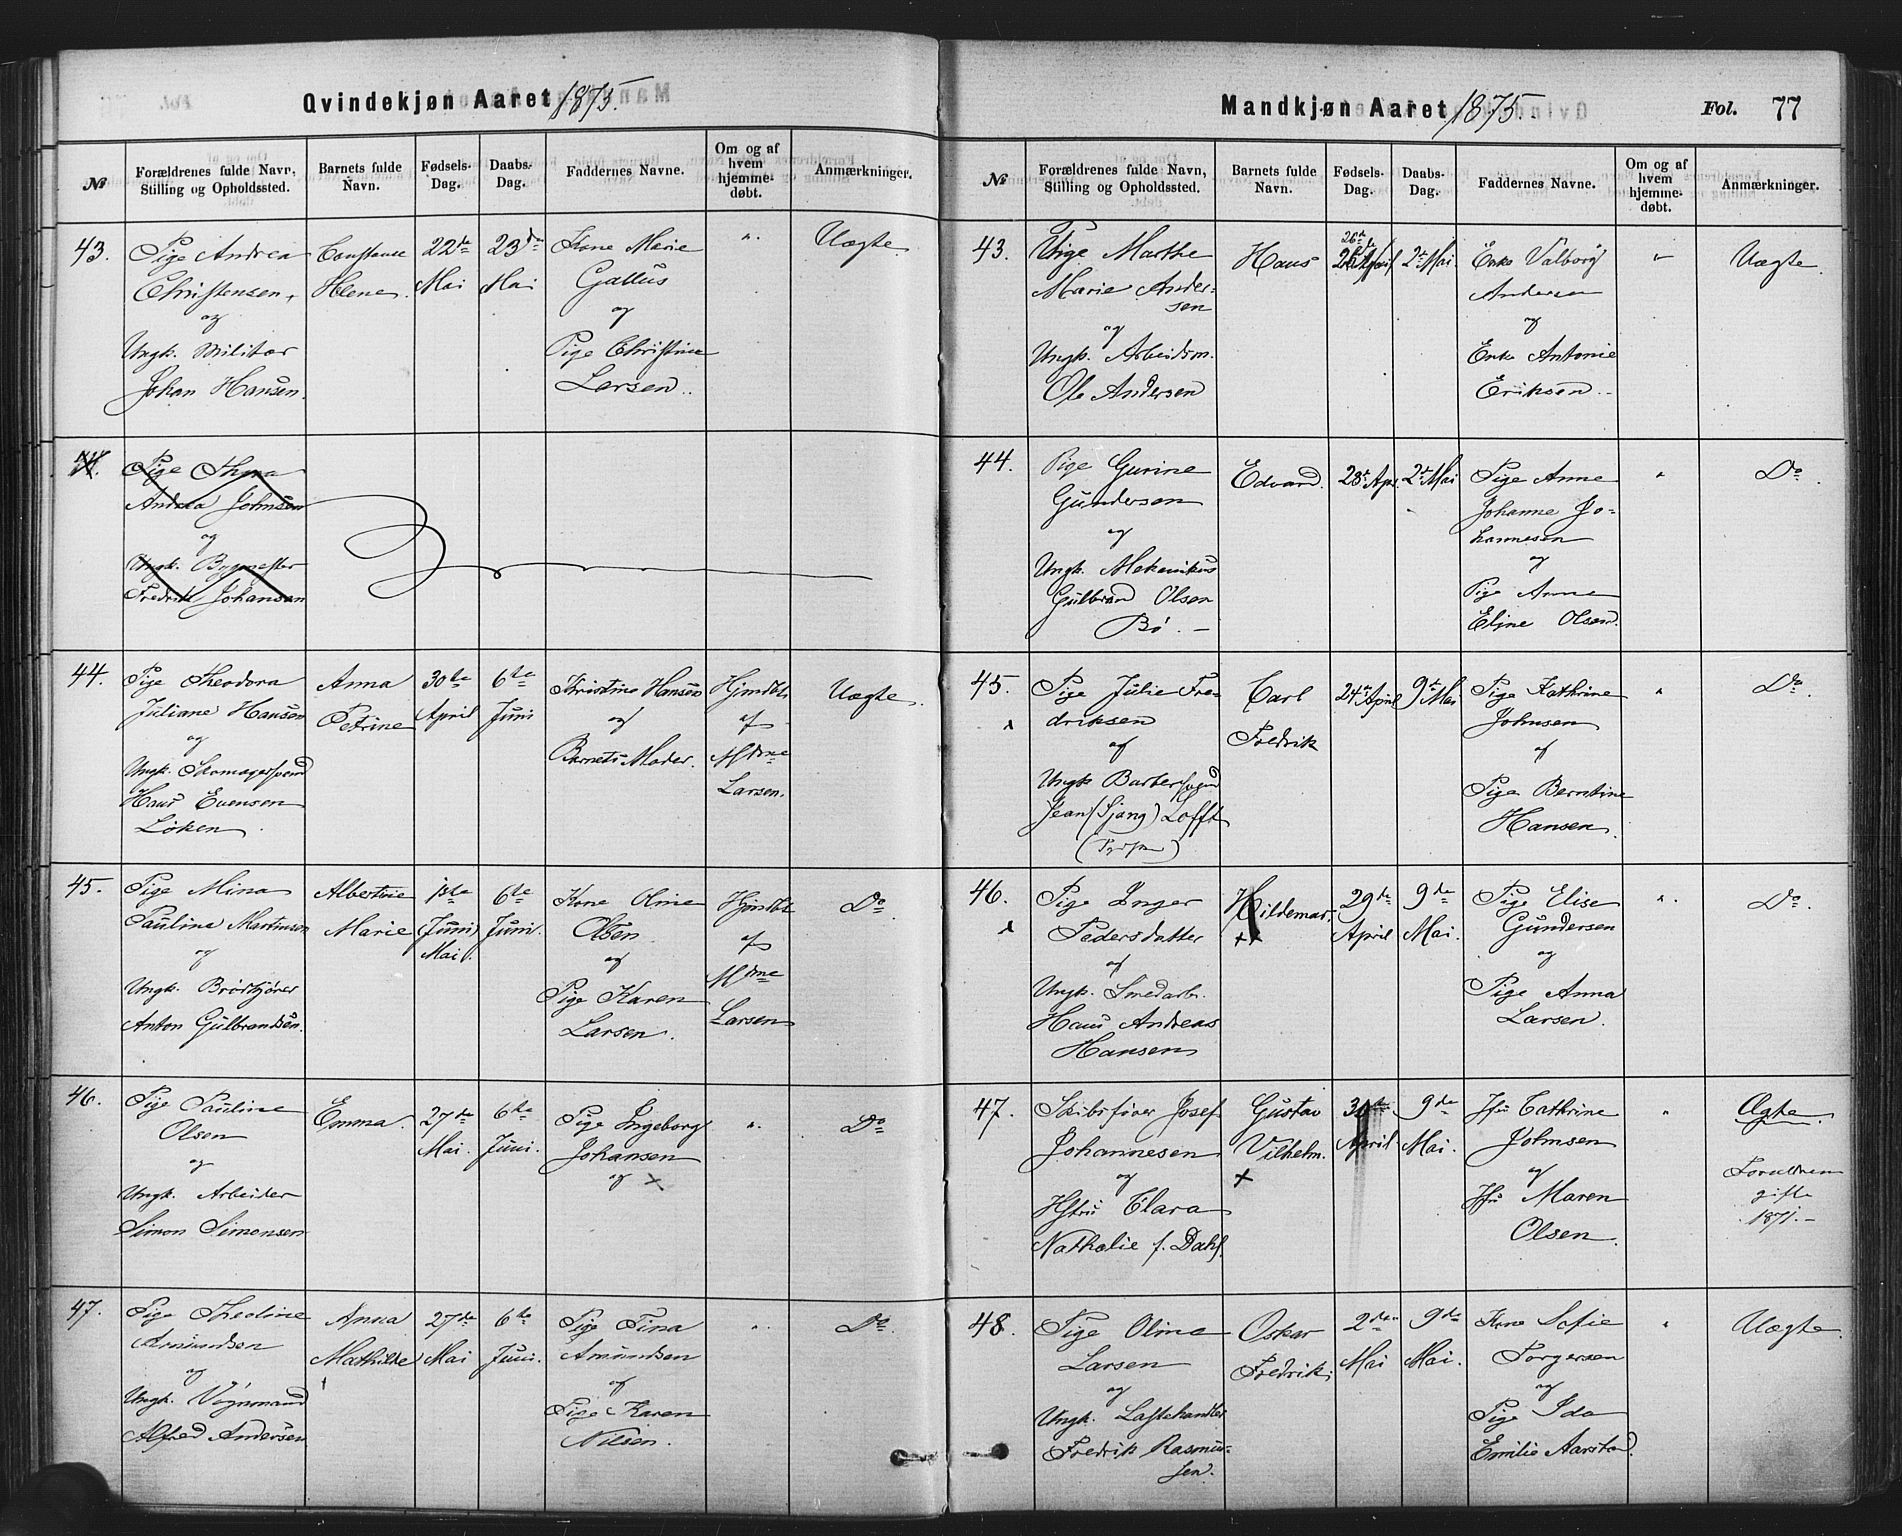 Qvindekjøn Aaret 1875.
№
Forældrenes fulde Navn, Stilling og Opholdssted.
Barnets fulde Navn.
Fødsels-Dag.
Daabs-Dag.
Faddernes Navne.
Om og af hvem hjemmedøbt.
Anmærkninger.
43.
Pige Andrea
Christensen,
og
Ungk. Militær
Johan Hansen.
Constanse
Helene.
22de
Mai
23de
Mai
Kone Marie
Gallus
og
Pige Christine
Larsen.
"
Uægte.
44.
Pige Thyra
Andrea Johnsen
og
Ungk. Bygmester
Fredrik Johansen
44.
Pige Theodora
Juliane Hansen
og
Ungk. Skomagersvend
Hans Evensen
Løken.
Anna
Petrine
30te
April
6te
Juni
Kristine Hansen
og
Barnets Moder.
Hjmdbt
af
Mdme
Larsen.
Uægte.
45.
Pige Mina
Pauline Martinsen
og
Ungk.
Anton Gulbrandsen.
Albertine
Marie
1ste
(Juni)
Mai.
6te
Juni.
Kone Oline
Olsen
og
Pige Karen
Larsen.
Hjmdbt
af
Mdme
Larsen
Do
46.
Pige Pauline
Olsen
og
Ungk. Arbeider
Simon Simonsen
Emma.
27de
Mai.
6te
Juni.
Pige Ingeborg
Johansen
og x
"
Do
47.
Pige Theoline
Amundsen
og
Ungk. Vognmand
Alfred Andersen
Anna
Mathilde
27de
Mai
6te
Juni.
Pige Tina
Amundsen
og
Pige Karen
Nilsen.
"
Do.
Mandkjøn Aaret 1875.
Fol. 77
№
Forældrenes fulde Navn, Stilling og Opholdssted.
Barnets fulde Navn.
Fødsels-Dag.
Daabs-Dag.
Faddernes Navne.
Om og af hvem hjemmedøbt.
Anmærkninger.
43.
Pige Marthe
Marie Ander-
sen
og
Ungk. Arbeidsm.
Ole Andersen
Hans
26de
April
2de Mai.
Enke Valborg
Andersen
og
Enke Antonie
Eriksen.
"
Uægte.
44.
Pige Gurine
Gundersen
og
Ungk. Mekanikus
Gulbrand Olsen
Bø. —
Edvard.
28de Apr.
2de Mai
Pige Anne
Johanne Jo-
hannesen
og
Pige Anne
Eline Olsen.
"
Do.
45.
Pige Julie Fre-
driksen
og
Ungk. Barbersvend
Jean (Sjang) Lofft
Carl
Fredrik
24de April
9de Mai
Pige Kathrine
Johnsen
og
Pige Berntine
Hansen.
"
Do.
46.
Pige Inger
Pedersdatter
og
Ungk. Smedarb.
Hans Andreas
Hansen
Hildemar.
xx
29de
April
9de
Mai.
Pige Elise
Gundersen
og
Pige Anna
Larsen.
"
Do.
47.
Skibsfører Josef
Johannesen
og
Hstru Clara
Nathalie f. Dahl.
Gustav
Vilhelm.
x
30te
April.
9de
Mai.
Jfr Cathrine
Johnsen
og
Jfr Maren
Olsen.
"
Ægte.
Forældrene
gifte
1871. —
48.
Pige Olina
Larsen
og
Ungk. Læstehandler
Fredrik Rasmus-
sen.
Oskar
Fredrik.
2den
Mai
9de
Mai.
Kone Sofie
Torgersen
og
Pige Ida
Emilie Aarstad.
"
Uægte.